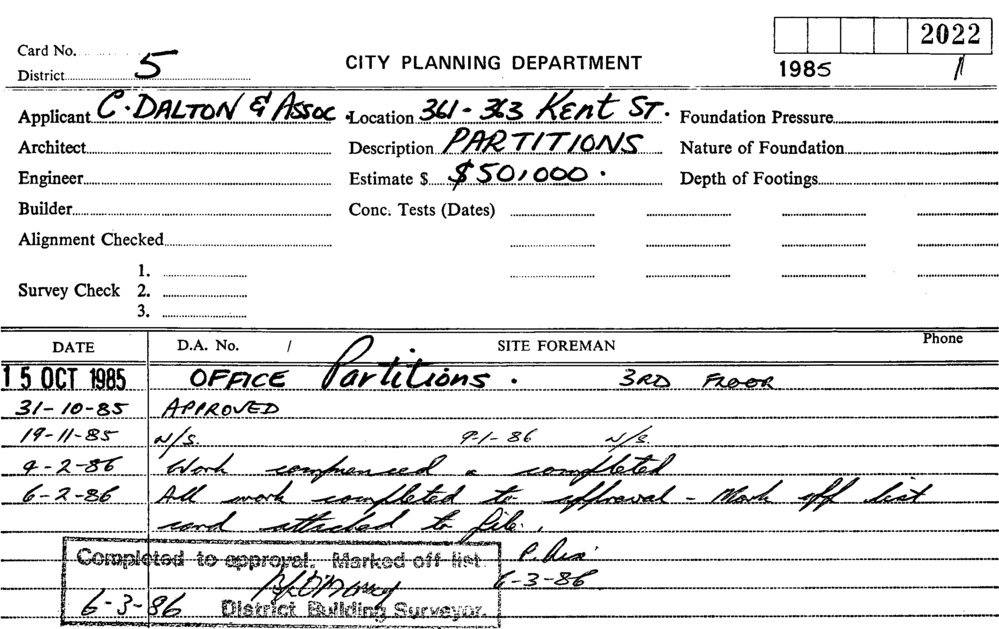 2022
Card No.
District 5
CITY PLANNING DEPARTMENT
1985 /1
Applicant C. DALTON & ASSOC. Location 361 - 363 Kent ST. Foundation Pressure
Architect Description PARTITIONS Nature of Foundation
Engineer Estimate $ $50,000. Depth of Footings
Builder Conc. Tests (Dates)
Alignment Checked
1.
Survey Check 2.
3.
DATE D.A. No. / SITE FOREMAN Phone
15 OCT 1985 OFFICE Partitions. 3RD FLOOR
31-10-85 APPROVED
19-11-85 N/S. 9-1-86 N/S.
4-2-86 Work commenced & completed
6-2-86 All work completed to approval - Mark off list
card attached to file.
Completed to approval. Marked off list. P.
6-3-86
6-3-86 District Building Surveyor.